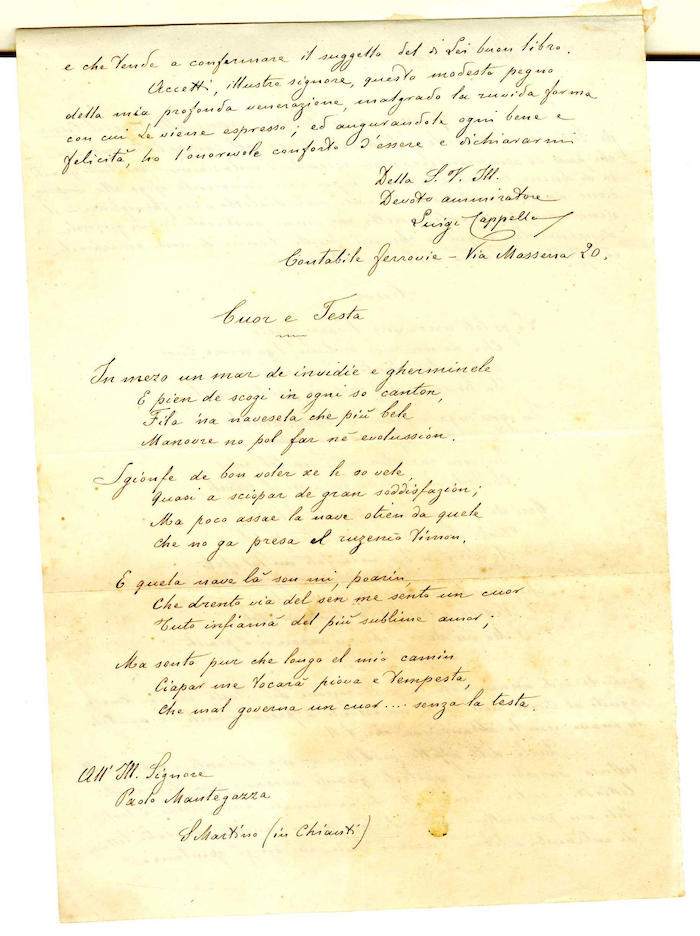 e che tende a confermare il suggetto del di Lei buon libro.
Accetti, illustre signore, questo modesto pegno
della mia profonda venerazione, malgrado la ruvida forma
con cui Le viene espresso; ed augurandole ogni bene e
felicità, ho l'onorevole conforto d'essere e dichiararmi
Della S. V. Ill.
Devoto ammiratore
Luigi Cappello
Contabile ferrovie - Via Massena 20.
Cuor e Testa
In mezo un mar de invidie e gherminele
E pien de scogi in ogni so canton,
Fila 'na navesela che più bele
Manovre no pol far nè evolussion.
Sgionfe de bon voler xe le so vele,
Quasi a sciopar de gran soddisfazion;
Ma poco assae la nave otien da quele
Che no ga presa el ruzenio timon.
E quela nave là son mi, poarin,
Che drento via del sen me sento un cuor
Tuto infiamà del più sublime amor;
Ma sento pur che longo el mio camin
Ciapar me tocarà piova e tempesta,
Che mal governa un cuor.... senza la testa.
All' Ill. Signore
Paolo Mantegazza
S Martino (in Chianti)